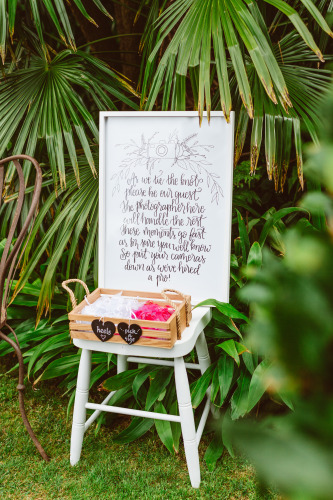 As we tie the knot
please be our guest
the photographer here
will handle the rest
These moments go fast
as for sure you well know
So put your cameras
down as we've hired
a pro!
heels
pick